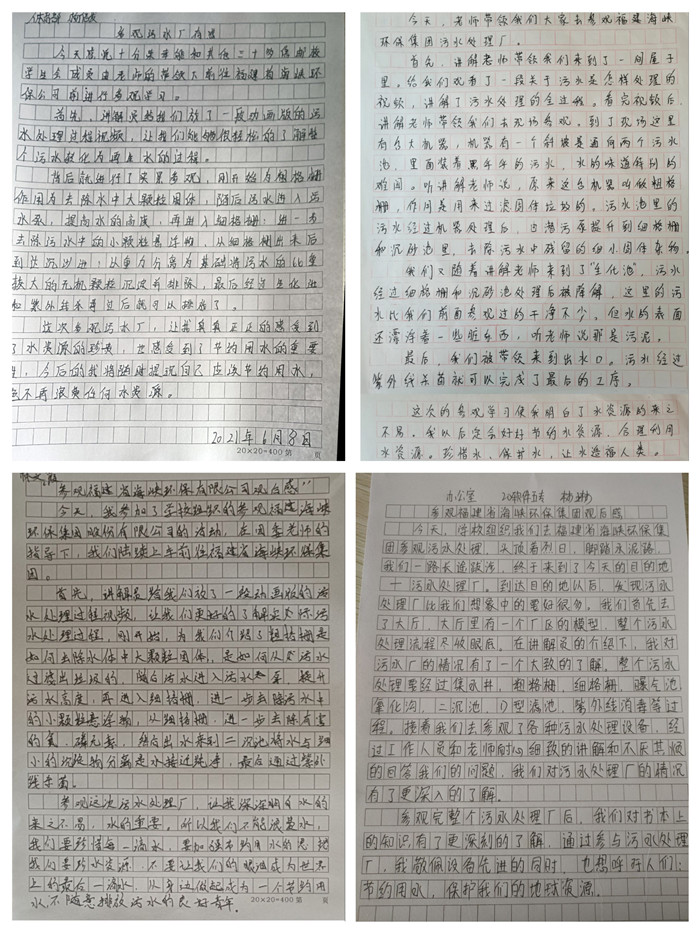 参观污水厂有感
今天陈悦十分荣幸能和其他三十多位
学生会成员由老师的带领下前往福建省海峡环
保公司前进行参观学习。
首先,讲解员给我们放了一段动画版的污
水处理过程视频,让我们能够很轻松的了解整
个污水变化为再生水的过程。
背后就进行了实景参观,刚开始为粗格栅
作用为去除水中大颗粒固体,随后污水进入污
水泵,提高水的高度,再进入细格栅:进一步
去除污水中的小颗粒悬浮物,从细格栅出来后
到达沉沙池:以重力分离为基础将污水的比重
较大的无机颗粒沉淀并排除,最后经过生化池
和紫外线杀毒过后就可以排放了。
这次参观污水厂,让我真真正正的感受到
了水资源的珍贵,也感受到了节约用水的重要
性,今后的我将随时提醒自己应该节约用水,
绝不再浪费任何水资源。
2021年6月8日
20×20=400 第 页
今天,老师带领我们大家去参观福建海峡
环保集团污水处理厂。
首先,讲解老师带领我们来到了一间屋子
里。给我们观看了一段关于污水是怎样处理的
视频,讲解了污水处理的全过程。看完视频后,
讲解老师带领我们去现场参观。到了现场这里
有台大机器,机器有一个斜坡是通向两个污水
池,里面装着黑乎乎的污水,水的味道特别的
难闻。听讲解老师说,原来这台机器叫做粗格
栅,作用是用来过滤固体垃圾的。污水池里的
污水经过机器处理后,由潜污泵提升到细格栅
和沉砂池里,去除污水中残留的细小固体杂物。
我们又随着讲解老师来到了“生化池”,污水
经过细格栅和沉砂池处理后被降解,这里的污
水比我们前面参观过的干净不少,但水的表面
还漂浮着一些脏东西,听老师说那是污泥。
最后,我们被带领来到出水口。污水经过
紫外线杀菌就可以完成了最后的工序。
这次的参观学习使我明白了水资源的来之
不易。我以后定会好好节约水资源,合理利用
水资源。珍惜水,保护水,让水造福人类。
参观福建省海峡环保有限公司观后感
今天,我参加了学校组织的参观福建海峡
环保集团股份有限公司的活动,在团委老师的
指导下,我们陆续上车前往福建省海峡环保集
团。
首先,讲解员给我们放了一段动画版的污
水处理过程视频,让我们更好的了解实际污
水处理过程,刚开始,为我们介绍了粗格栅是
如何去除水体中大颗粒固体,是如何从受污水
过滤出垃圾的,随后污水进入污水泵,提升
污水高度,再进入细格栅,进一步去除污水中
的小颗粒悬浮物,从细格栅,进一步去除有害
的氮,磷元素,然后出水来到二沉池将水与细
小的沉淀物分离走水接过纯净,最后通过紫外
线杀菌。
参观这次污水处理厂,让我深深明白水的
来之不易,水的重要。所以我们不能浪费水,
我们要珍惜每一滴水,要加强节约用水的意识
我们要珍水资源,不要让我们的眼泪成为世界
上的最后一滴水,从身边做起成为一个节约用
水,不随意排放污水的良好青年。
20×20=400 第 页
办公室 20软件五专 杨琳
参观福建省海峡环保集团观后感
今天,学校组织我们去福建省海峡环保集
团参观污水处理,头顶着烈日,脚踏水泥路,
我们一路长途跋涉,终于来到了今天的目的地
——污水处理厂。到达目的地以后,发现污水
处理厂比我们想象中的要好很多,我们首先去
了大厅,大厅里有一个厂区的模型,整个污水
处理流程尽收眼底。在讲解员的介绍下,我对
污水厂的情况有了一个大致的了解。整个污水
处理要经过集水井,粗格栅,细格栅,曝气池,
氧化沟,二沉池,D型滤池,紫外线消毒等过
程。接着我们去参观了各种污水处理设备,经
过工作人员和老师耐心细致的讲解和不厌其烦
的回答我们的问题,我们对污水处理厂的情况
有了更深入的了解。
参观完整个污水处理厂后,我们对书本上
的知识有了更深刻的了解,通过参与污水处理
厂,我敬佩设备先进的同时,也想呼吁人们:
节约用水,保护我们的地球资源。